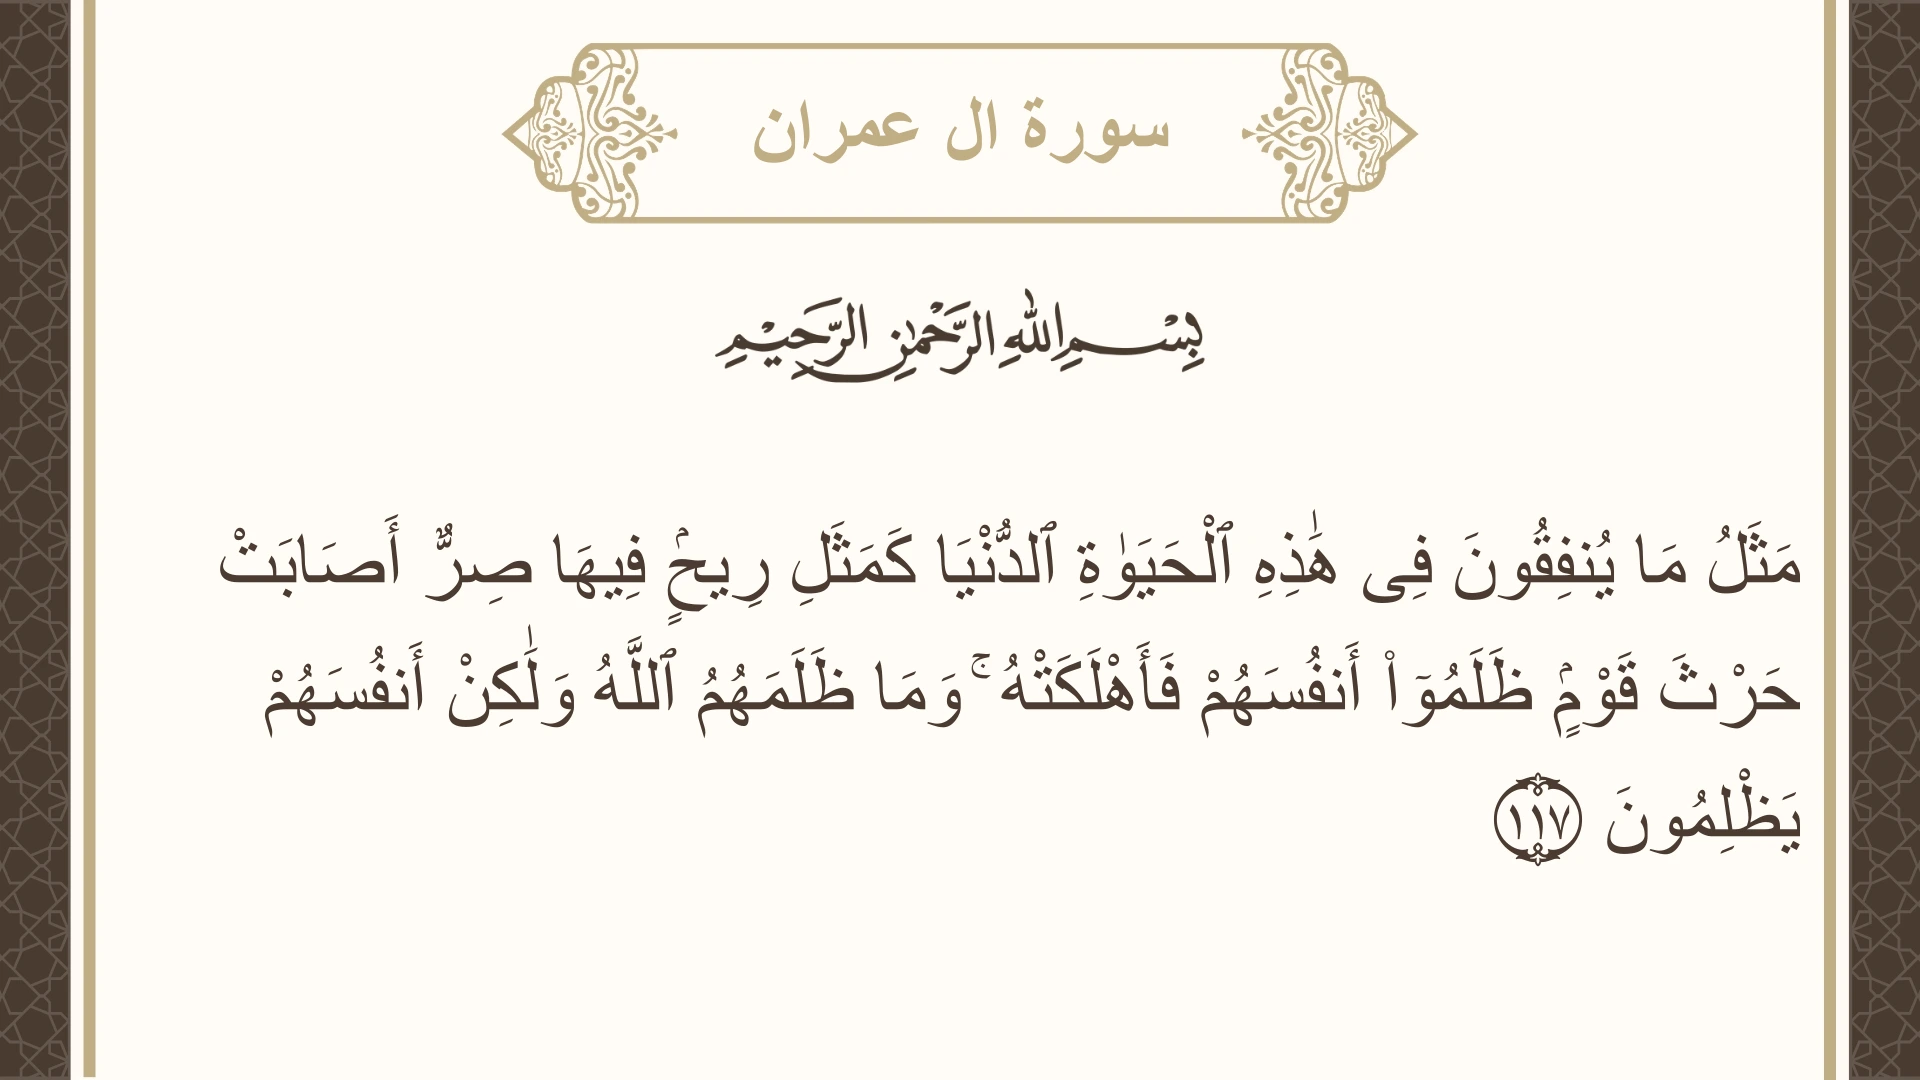 سورة ال عمران
بِسْمِ اللهِ الرَّحْمٰنِ الرَّحِيْمِ
مَثَلُ مَا يُنفِقُونَ فِى هَٰذِهِ ٱلْحَيَوٰةِ ٱلدُّنْيَا كَمَثَلِ رِيحٍۢ فِيهَا صِرٌّ أَصَابَتْ
حَرْثَ قَوْمٍۢ ظَلَمُوٓا۟ أَنفُسَهُمْ فَأَهْلَكَتْهُ ۚ وَمَا ظَلَمَهُمُ ٱللَّهُ وَلَٰكِنْ أَنفُسَهُمْ
يَظْلِمُونَ ١١٧